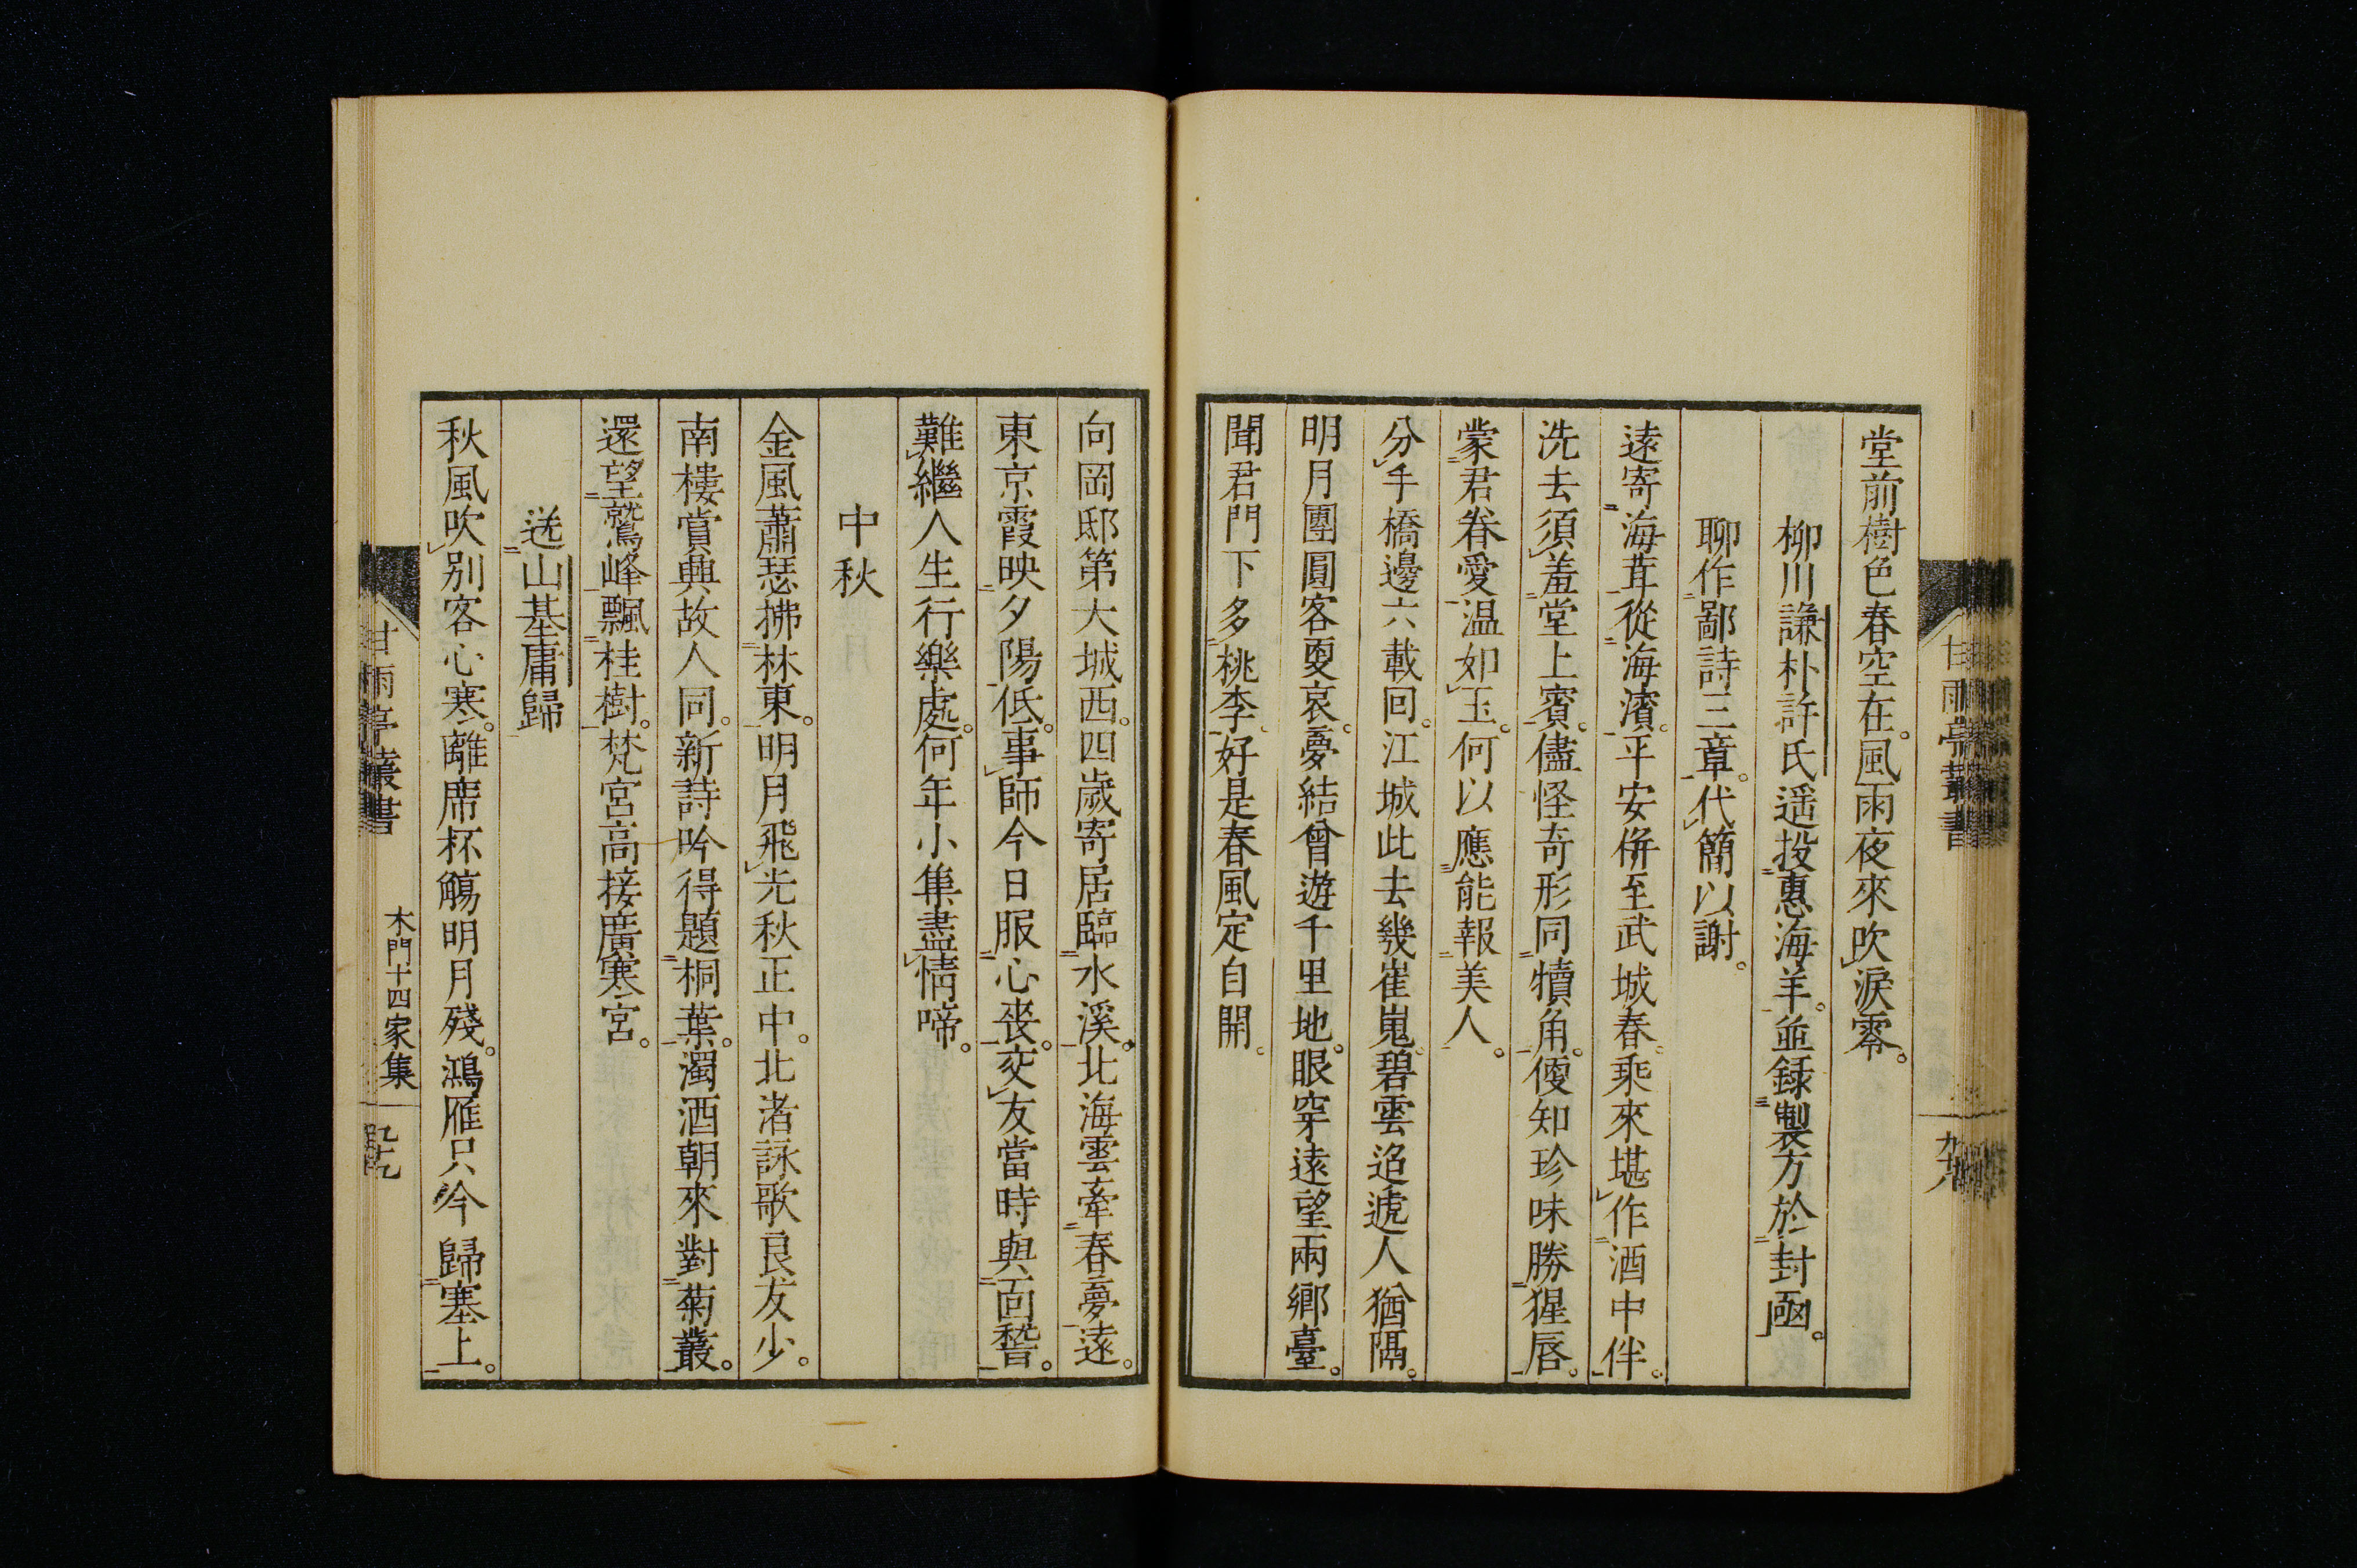 堂前樹色春空在。風雨夜來吹淚零。
柳川謙朴許氏遥投惠海羊。並録製方於封𠖥。
聊作鄙詩三章。代簡以謝。
遠寄海茸從海濱。平安併至武城春。乘來堪作酒中伴。
洗去須羞堂上賓。儘怪奇形同犢角。便知珍味勝猩唇。
蒙君眷愛温如玉。何以應能報美人。
分手橋邊六載回。江城此去幾崔嵬。碧雲迢遞人猶隔。
明月團圓客更哀。夢結曾遊千里地。眼穿遠望兩鄉臺。
聞君門下多桃李。好是春風定自開。
甘雨亭叢書
九十八
向岡邸第大城西。四歲寄居臨水溪。北海雲牽春夢遠。
東京霞映夕陽低。事師今日服心喪。交友當時與面稽。
難繼人生行樂處。何年小集盡情啼。
中秋
金風蕭瑟拂林東。明月飛光秋正中。北渚詠歌良友少。
南樓賞興故人同。新詩吟得題桐葉。濁酒朝來對菊叢。
還望鷲峰飄桂樹。梵宮高接廣寒宮。
送山基庸歸
秋風吹別客心寒。離席杯觴明月殘。鴻雁只今歸塞上。
甘雨亭叢書
木門十四家集